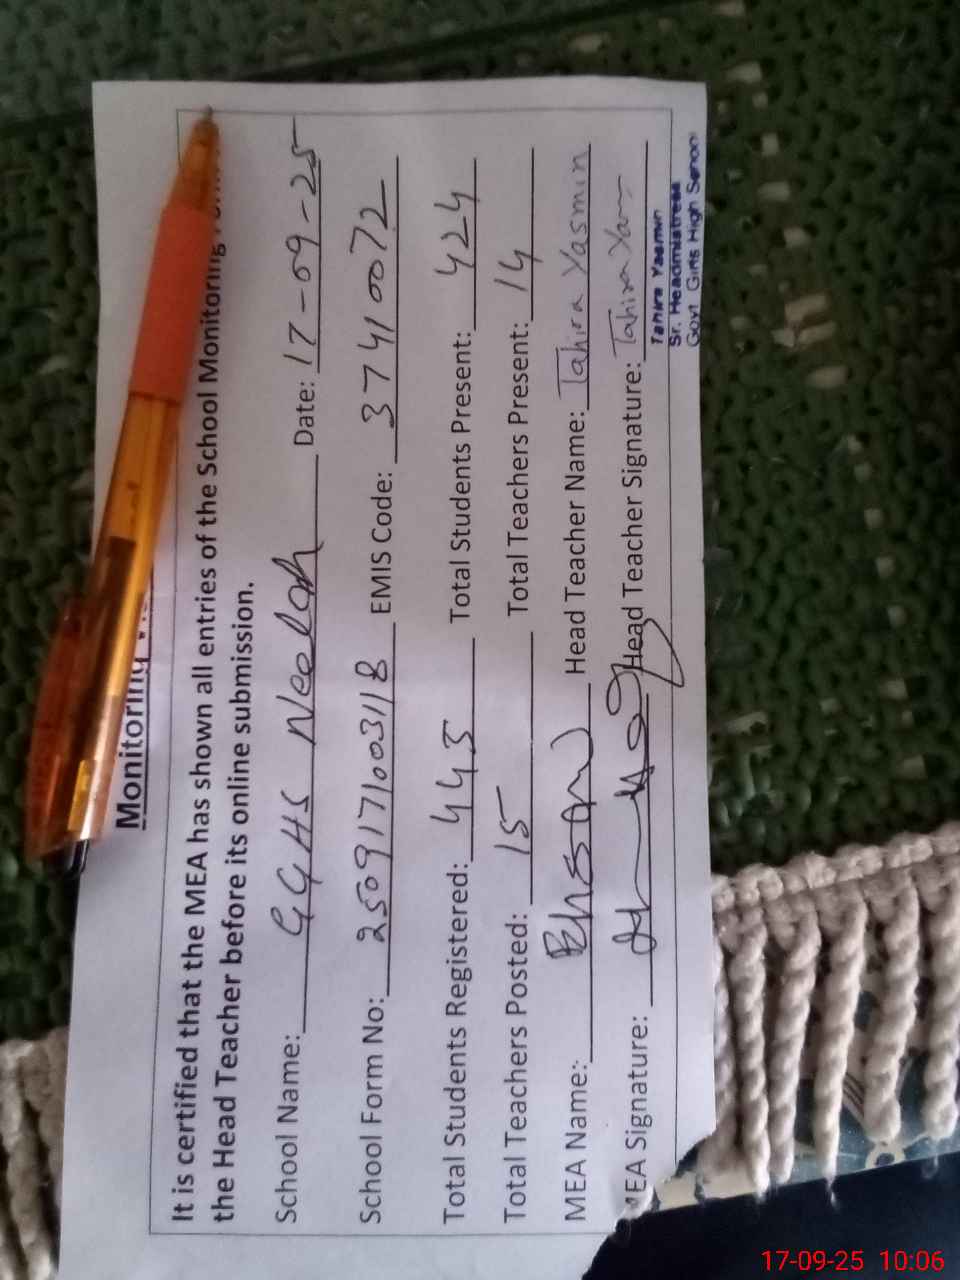 Monitoring
It is certified that the MEA has shown all entries of the School Monitoring
the Head Teacher before its online submission.
School Name: GGHS Neelah Date: 17-09-25
School Form No: 2509171003118 EMIS Code: 37410072
Total Students Registered: 443 Total Students Present: 424
Total Teachers Posted: 15 Total Teachers Present: 14
MEA Name: Ehsan Head Teacher Name: Tahira Yasmin
MEA Signature: Head Teacher Signature: Tahira Yas
Tahira Yasmin
Sr. Headmistress
Govt Girls High School
17-09-25 10:06